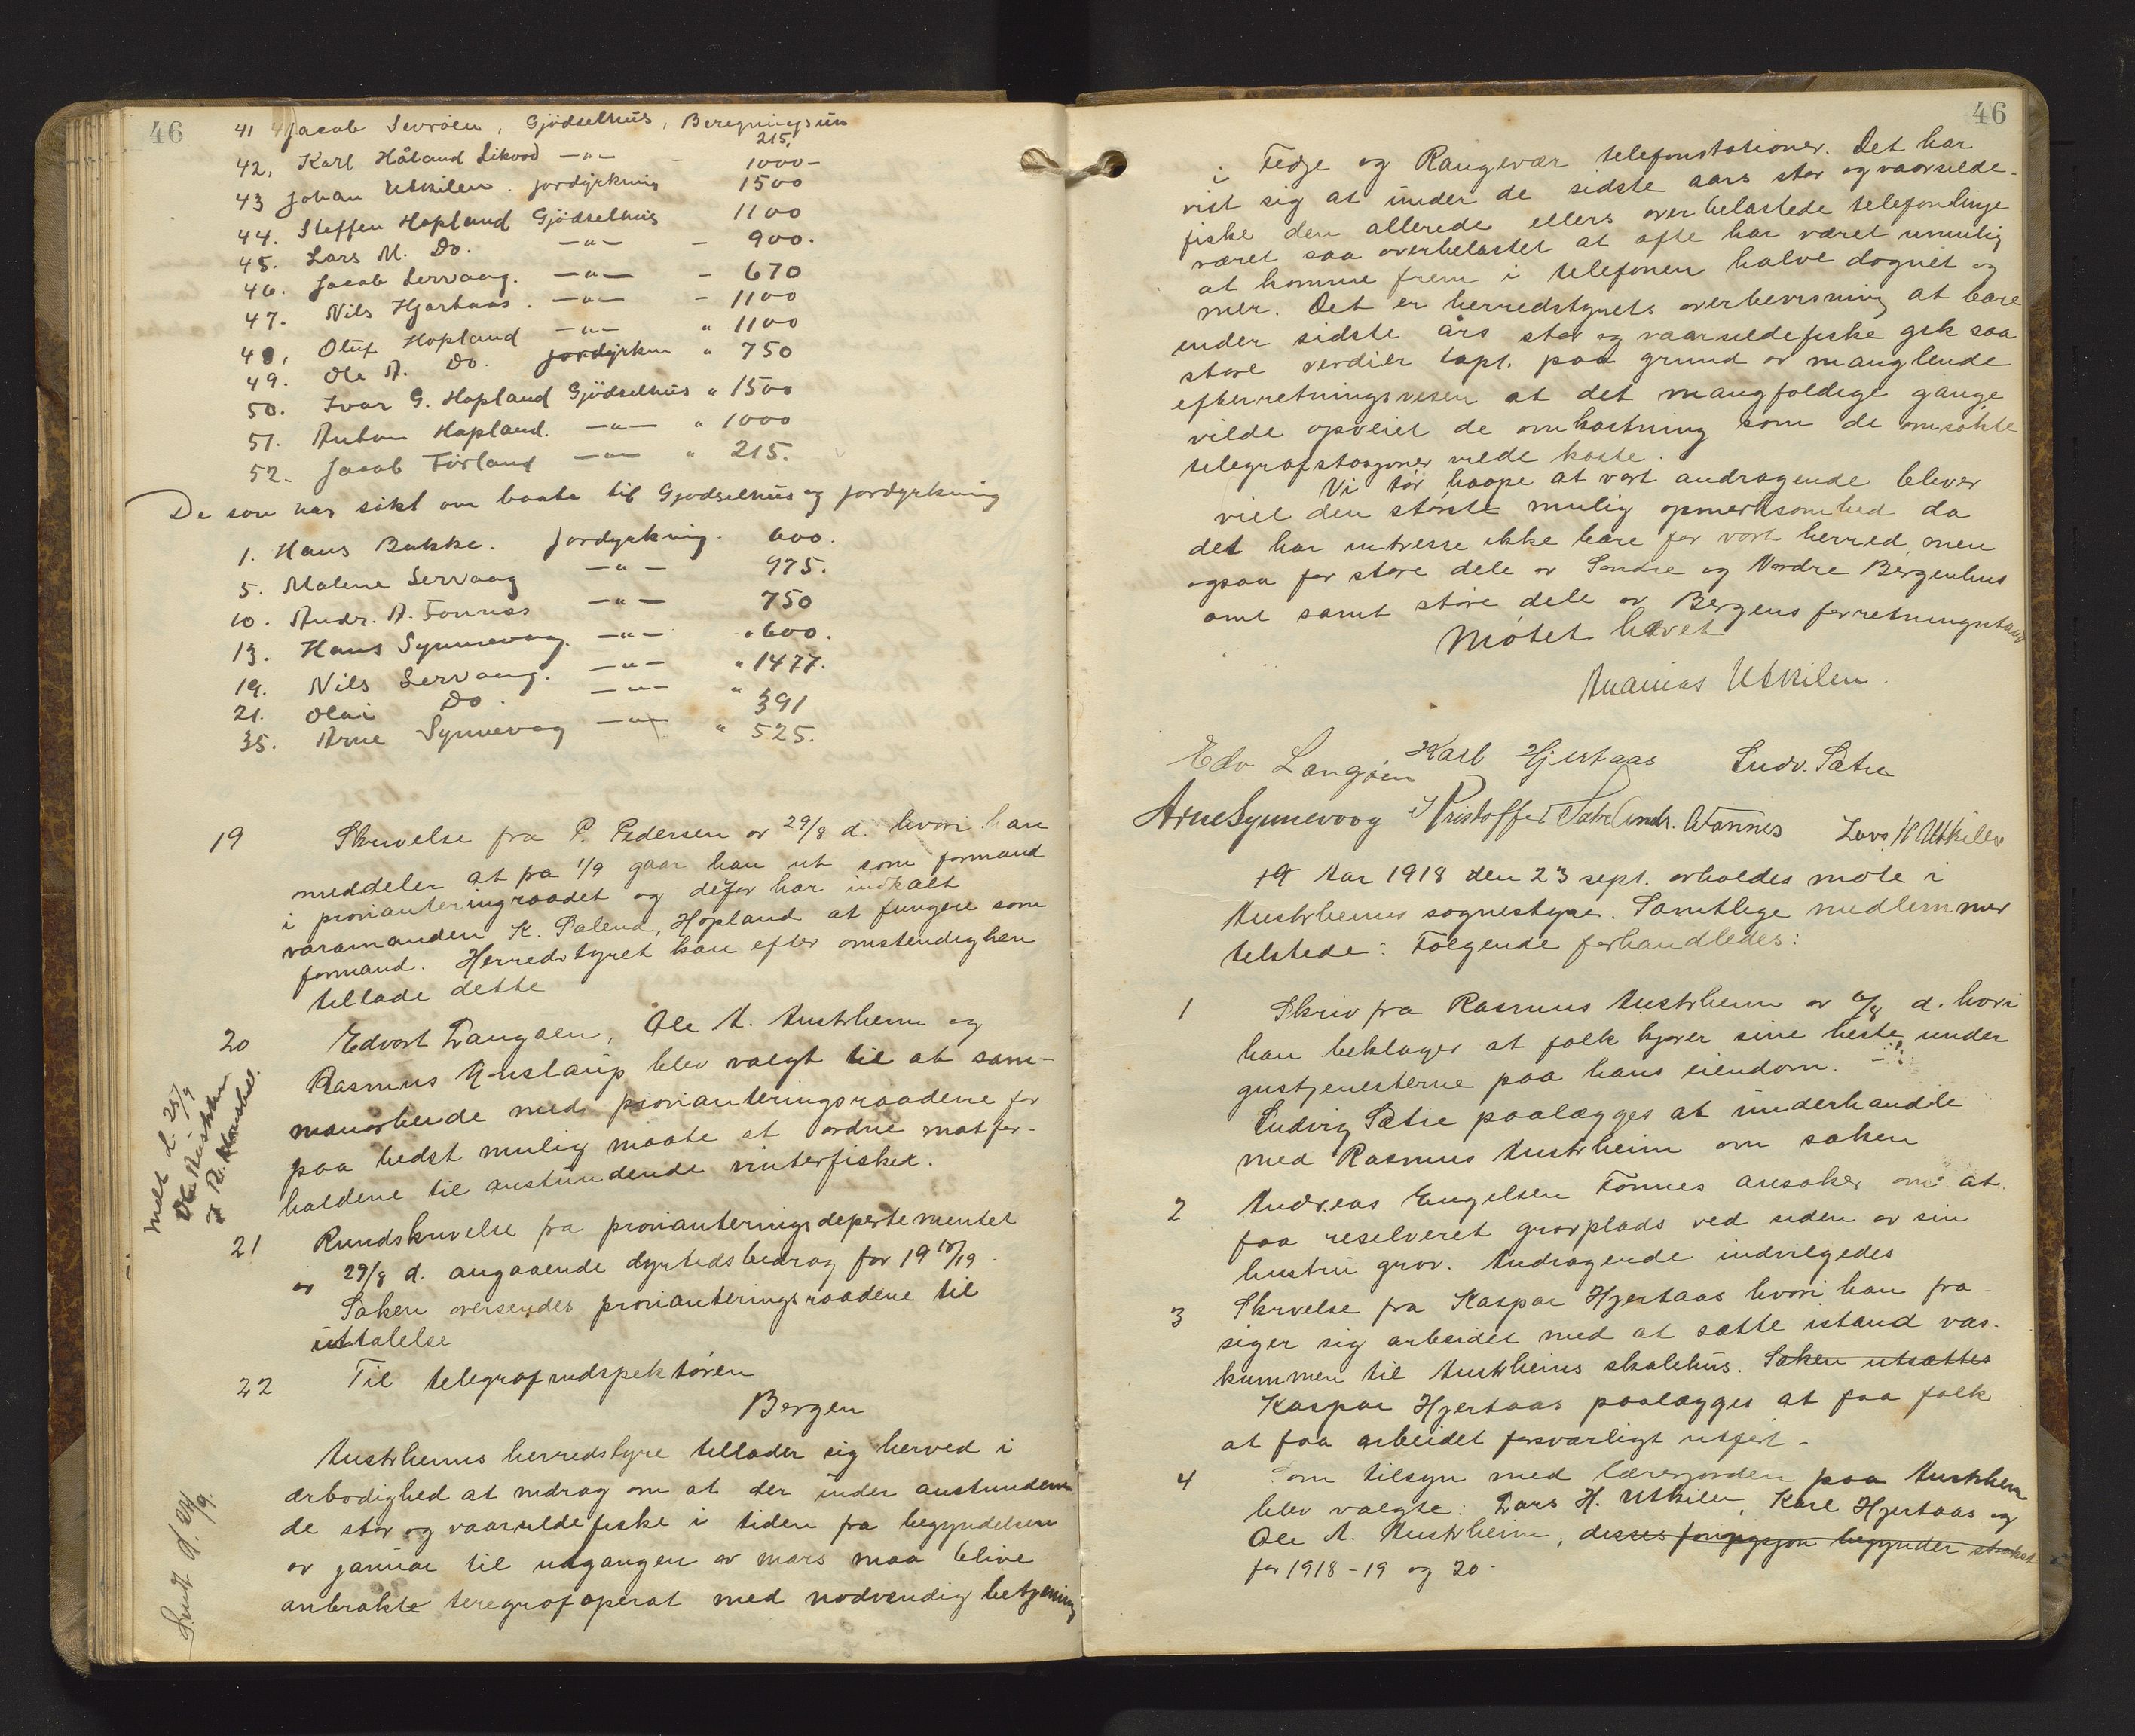 46
41 Jacob Sevröen, Gjödselhüs, Beregningsün
215,
42, Karl Håland Likvod —"— - 1000-
43 Johan Utkilen. jordÿrkning 1500
44. Steffen Hopland Gjödselhüs 1100
45. Lars M. Do. —"— - 900.
46. Jacob Lervaag. —"— - 670
47. Nils Hjartaas. —"— - 1100
48, Oluf Hopland —"— " 1100
49. Ole A. Do. jordÿrkun " 750
50. Ivar G. Hopland Gjödselhüs " 1500
51. Anton Hopland. —"— " 1000
52. Jacob Förland —"— " 215.
De som har sökt om baate til Gjodselhüs og jordyrkning
1. Hans Bakke. jordyrkning. 600.
5. Malene Lervaag —"— 975.
10. Andr. A. Fonnes —"— 750
13. Hans Synnevaag. —"— " 600.
19. Nils Lervaag. —"— " 1477.
21. Olai Do —"— " 391
35. Arne Synnevag —"— " 525.
19 Skrivelse fra P. Pedersen av 29/8 d. hvori han
meddeler at fra 1/9 gaar han ut som formand
i provianteringraadet og defor har indkalt
varamanden K. Palend, Hopland at fungere som
formand. Herredstyret kan efter omstendighen
tillade dette
20 Edvart Langöen, Ole A. Austrheim og
Rasmus Konslaup blev valgt til at sam-
manarbeide med provianteringsraadene for
paa bedst mulig maate at ordne matfor-
holdene til anstundende vinterfisket.
melt d. 25/9
Ole Austrheim
21 Rundskrivelse fra provianteringsdepartementet
av 29/8 d. angaaende dyrtidsbedrag for 19 18/19
Saken oversendes provianteringsraadene til
üttalelse
22 Til telegrafindspektören
Bergen
Austrheims herredstyre tillader sig herved i
ærbodighed at indrag om at der under anstunden
de stor og vaarsildefiske i tiden fra begyndelsen
av januar til udgangen av mars maa blive
anbrakte teregrafaperat med nodvendig betjening
Sendt d. 24/9.
46
i Fedje og Raugevær telefonstationer. Det har
vist sig at ünder de sidste aars stor og vaarsilde-
fiske den allerede ellers overbelastede telefonlinje
været saa overbelastet at ofte har været umulig
at komme frem i telefonen halve dognet og
mer. Det er herredstyrets overbevisning at bare
under sidste års stor og vaarsildefiske gik saa
store verdier tapt. paa grund av manglende
efterretningsvesen at det mangfoldige gange
vilde opveiet de omkostning som de omsökte
telegrafstasjoner vilde koste.
Vi tör haape at vort andragende blever
viet den störste mulig opmerksomhed da
det har intresse ikke bare for vort herred, men
ogsaa for store dele av Söndre og Nordre Bergenhus
amt samt störe dele av Bergens forretningsstand
Mötet hævet
Ananias Utkilen.
Edv Langöen Karl Hjertaas Ludv. Sætre
Arne Synnevaag Kristoffer Sætre Andr. Fonnes Lars. H. Utkilen
Aar 1918 den 23 sept. avholdes möte i
Austrheims sognestyre. Samtlige medlemmer
telstede: Folgende forhandledes:
1 Skriv fra Rasmus Austrheim av 6/8 d. hvori
han beklager at folk kjører sine heste under
gustjenesterne paa hans eiendom. -
Ludvig Sætre paalægges at ünderhandle
med Rasmus Austrheim om saken
2 Andreas Engelsen Fonnes ansøker om at
faa reselveret gravplads ved siden av sin
hustrü grav. Andragende indvilgedes
3 Skrivelse fra Kaspar Hjertaas hvori han fra-
siger sig arbeidet med at sætte istand vas-
kummen til Austrheims skolehüs. Saken utsættes
Kaspar Hjertaas paalægges at faa folk
at faa arbeidet forsvarligt utfört -
4 Som tilsyn med lærerjorden paa Austrheim
blev valgte: Lars H. Utkilen, Karl Hjertaas og
Ole A. Austrheim, desses fungsjon begynder straks
for 1918-19 og 20.